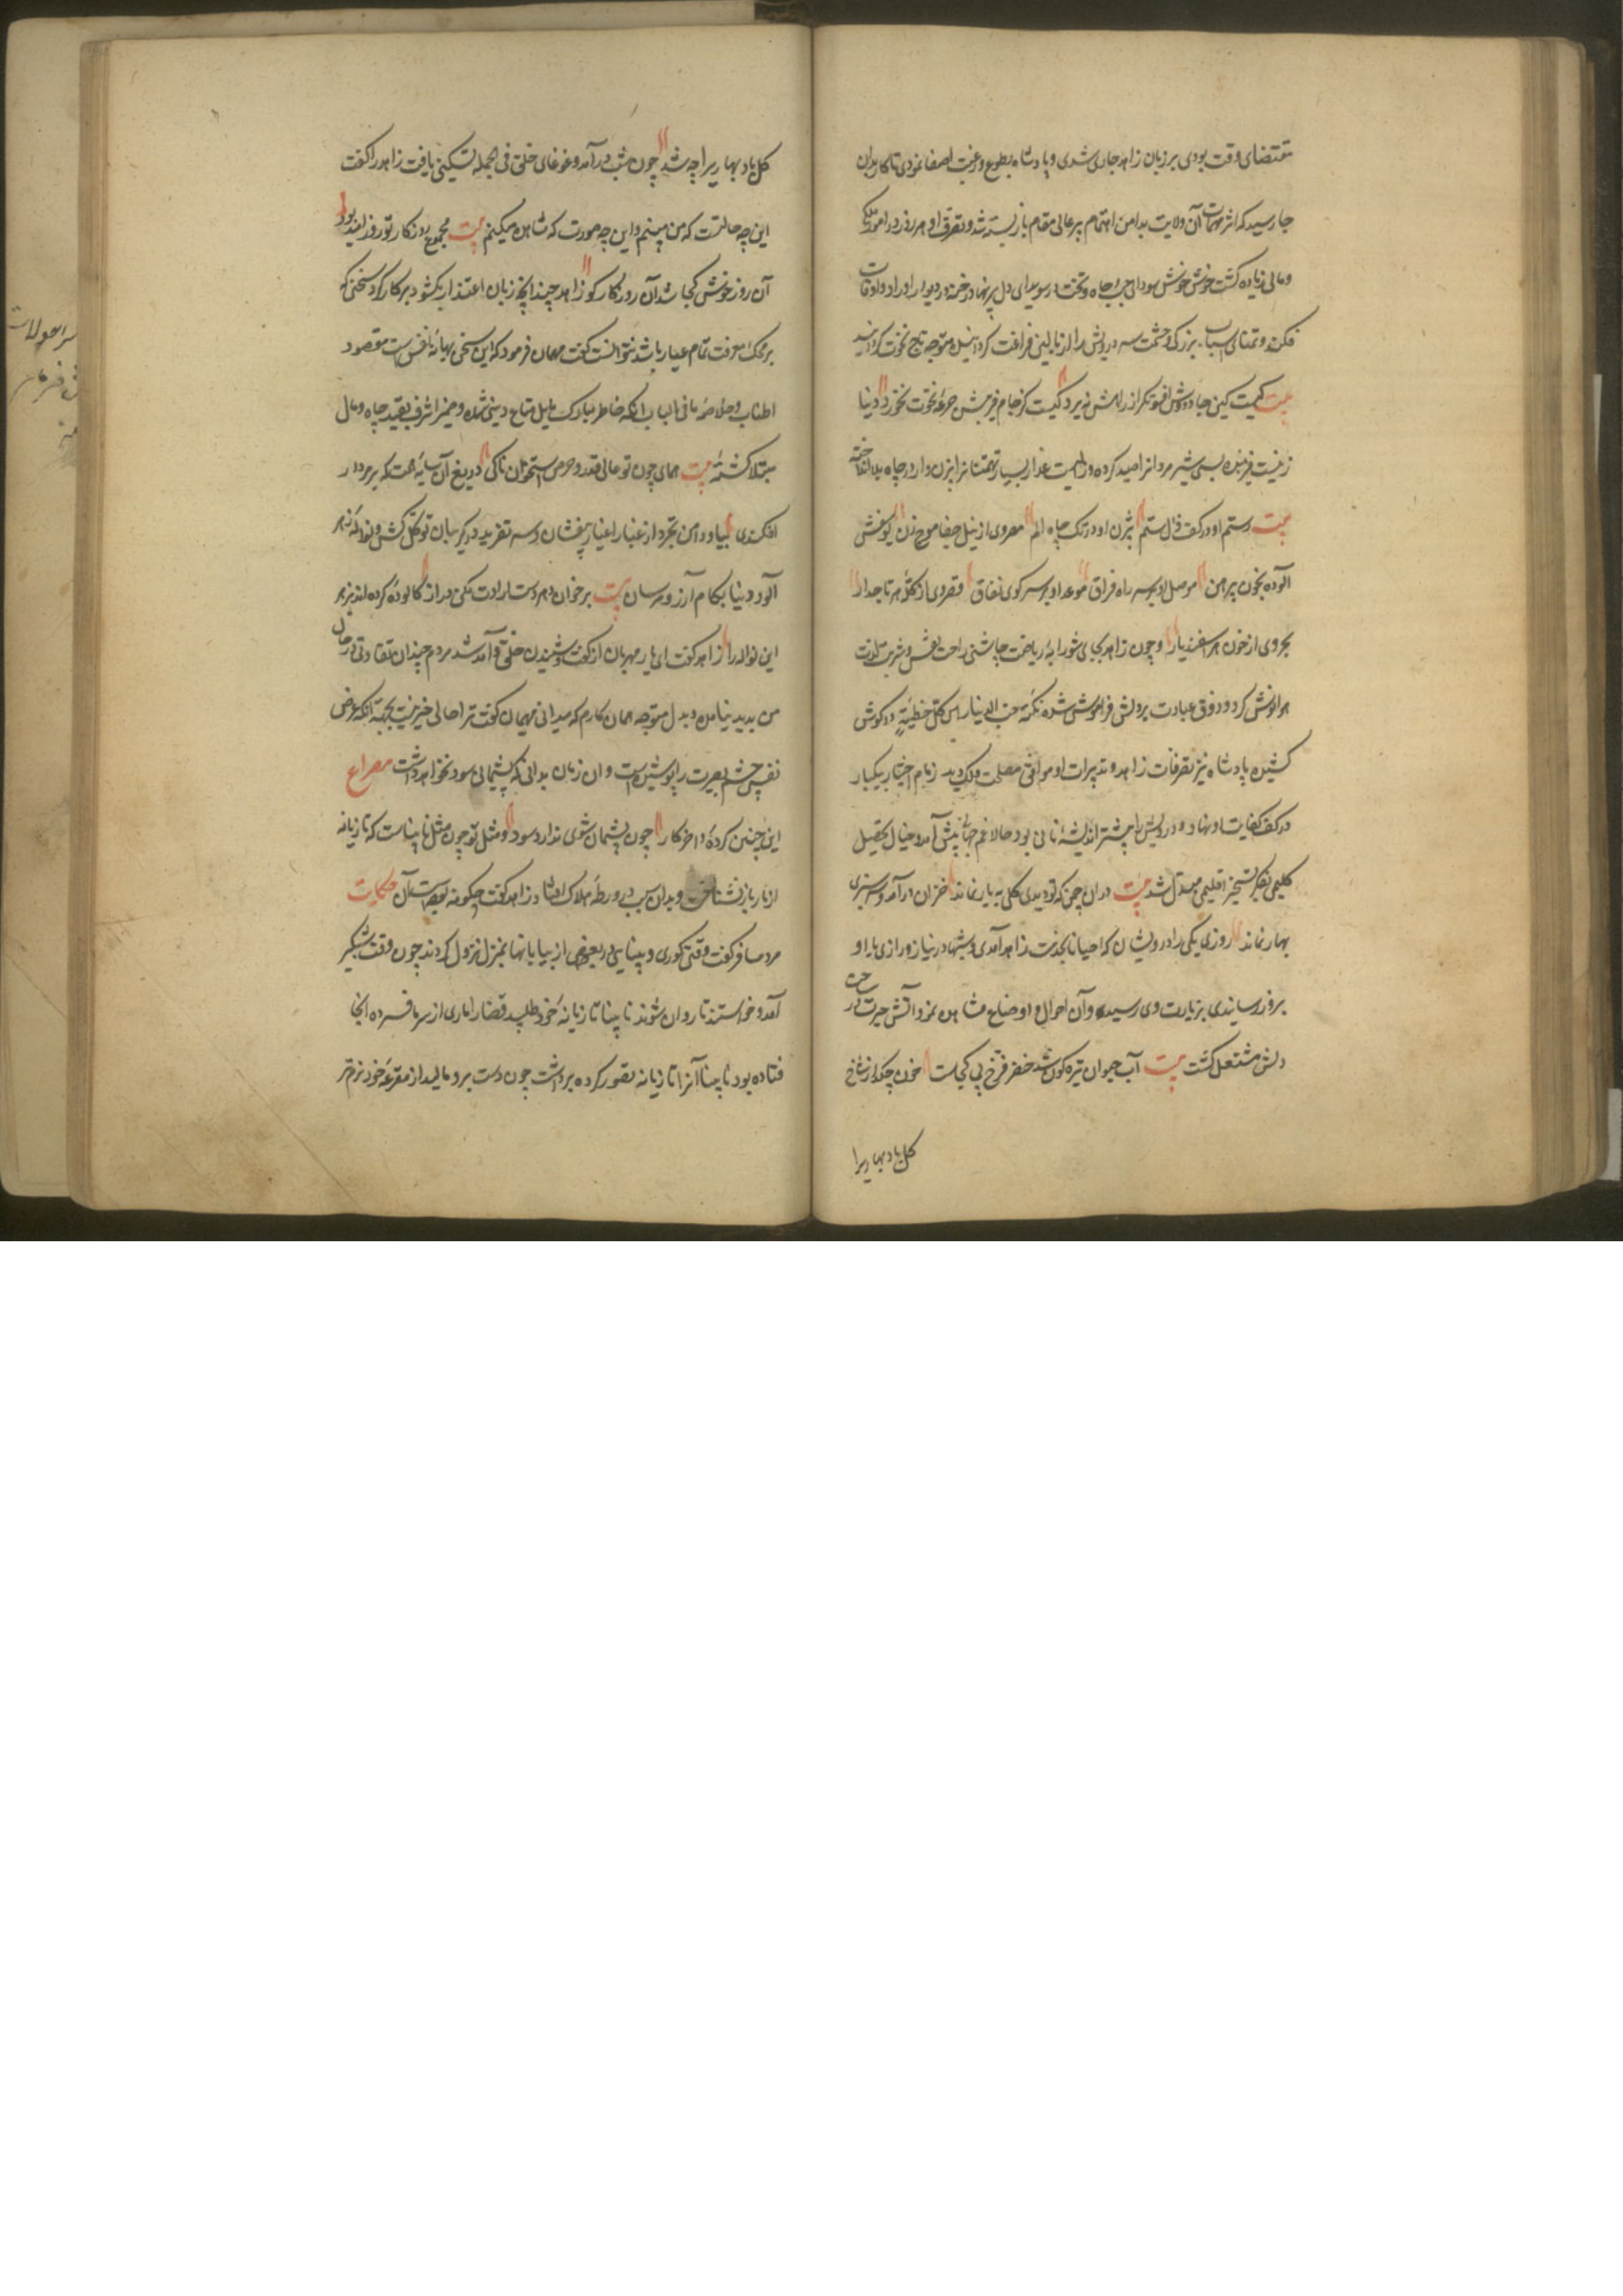 مقتضای وقت بودی بر زبان زاهد جاری شدی و پادشاه بطوع و رغبت اصغا نمودی تا کار بدان
جا رسید که اکثر مهمات آن ولایت بدامن اهتمام پیر عالی مقام باز بسته شد و تصرف او هر روز در امور ملکی
و مالی زیاده گشت خوش خوش سودای حب جاه و تخت در سویدای دل پیر نهاد رخنه در دیوار اوراد و اوقات
فکند و تمنای اسباب بزرگی و حشمت سر درویش را از بالین فراغت گردانیده متوجه تاج نخوت گردانید
بیت کیست کین جادووش افسونگر از راهش نبرد کیست کز جام فریبش جرعه نخوت نخورد دنیا
زنیست فریبنده بسی شیر مردانرا صید کرده و زالیست غدار بسیار تهمتنانرا بیژن وار در چاه بلا انداخته
بیت رستم او در کف زال ستم بیژن او در تک چاه الم مصروی از نیل جفا موج زن یوسفش
آلوده بخون پیرهن موصل او بر سر راه فراق موعد او بر سر کوی نفاق قصر وی از کله هر تاجدار
بحر وی از خون هر اسفندیار و چون زاهد بجای شورابه ریاضت چاشنی راحت نفس و شربت لذت
هوا نوش کرد و ذوق عبادت بر دلش فراموش شده نکته حب الدنیا راس کل خطیئة در گوش
کشید پادشاه نیز تصرفات زاهد و تدبیرات او موافق مصلحت ملک دید زمام اختیار بیکبار
در کف کفایت او نهاد و درویش را پیشتر اندیشه نانی بود حالا غم جهانی پیش آمد و خیال تحصیل
گلیمی بفکر تسخیر اقلیمی مبدل شد بیت در آن چمن که تو دیدی گلی به بار نماند خزان درآمد و سرسبزی
بهار نماند روزی یکی را از درویشان که احیانا بخدمت زاهد آمدی و شبها در نیاز و رازی با او
بروز رسانیدی بزیارت وی رسید و آن احوال و اوضاع مشاهده نمود آتش حیرت در
دلش مشتعل گشت بیت آب حیوان تیره گون شد خضر فرخ پی کجاست خون چکد از شاخ
گل باد بهاریرا
گل باد بهاریرا چه شد چون شب درآمد و غوغای خلق فی الجمله تسکینی یافت زاهد را گفت
این چه حالتست که من میبینم و این چه صورتست که مشاهده میکنم بیت مجموع روزگار تو روز امید بود
آن روز خوش کجا شد آن روزگار کو زاهد چندانکه زبان اعتذار بگشود بر کار کرد سخنی که
بر محک معرفت تمام عیار باشد نتوانست گفت مهمان فرمود که این سخن بهانه نفس است مقصود
اطناب و خلاصه ما فی الباب آنکه خاطر مبارک مایل متاع دنیی شده و ضمیر اشرف بقید جاه و مال
مبتلا گشته بیت همای چون تو عالی قدر و حرص استخوان تا کی دریغ آن سایه همت که بر مردار
افکندی بیا و دامن تجرد از غبار اغیار بیفشان و سر تفرید در گریبان توکل کش و نواله زهر
آلود دنیا بکام آرزو مرسان بیت بر خوان دهر دست ارادت مکن دراز کآلوده کرده اند بزهر
این نواله را زاهد گفت ای یار مهربان از گفت و شنیدن خلق و آمد شد مردم چندان تفاوتی در حال
من پدید نیامده و بدل متوجه همان کارم که میدانی مهمان گفت ترا حالی خبر نیست بجهة آنکه غرض
نفس چشم بصیرت را پوشیده است و آن زمان بدانی که پشیمانی سود نخواهد داشت مصراع
این چنین کرده را آخر کار چون پشیمان شوی ندارد سود و مثل تو چون مثل نابیناست که تازیانه
از مار باز نشناخت و بدان سبب در ورطه هلاک افتاد زاهد گفت چگونه بوده است آن حکایت
مرد مسافر گفت وقتی کوری و بینایی در بعضی از بیابانها بمنزل نزول کردند چون وقت شبگیر
آمد و خواستند تا روان شوند نابینا تازیانه خود طلبید قضا را ماری از سرما فسرده آنجا
فتاده بود نابینا آنرا تازیانه تصور کرده برداشت چون دست برو مالید از مقرعه خود نرم تر